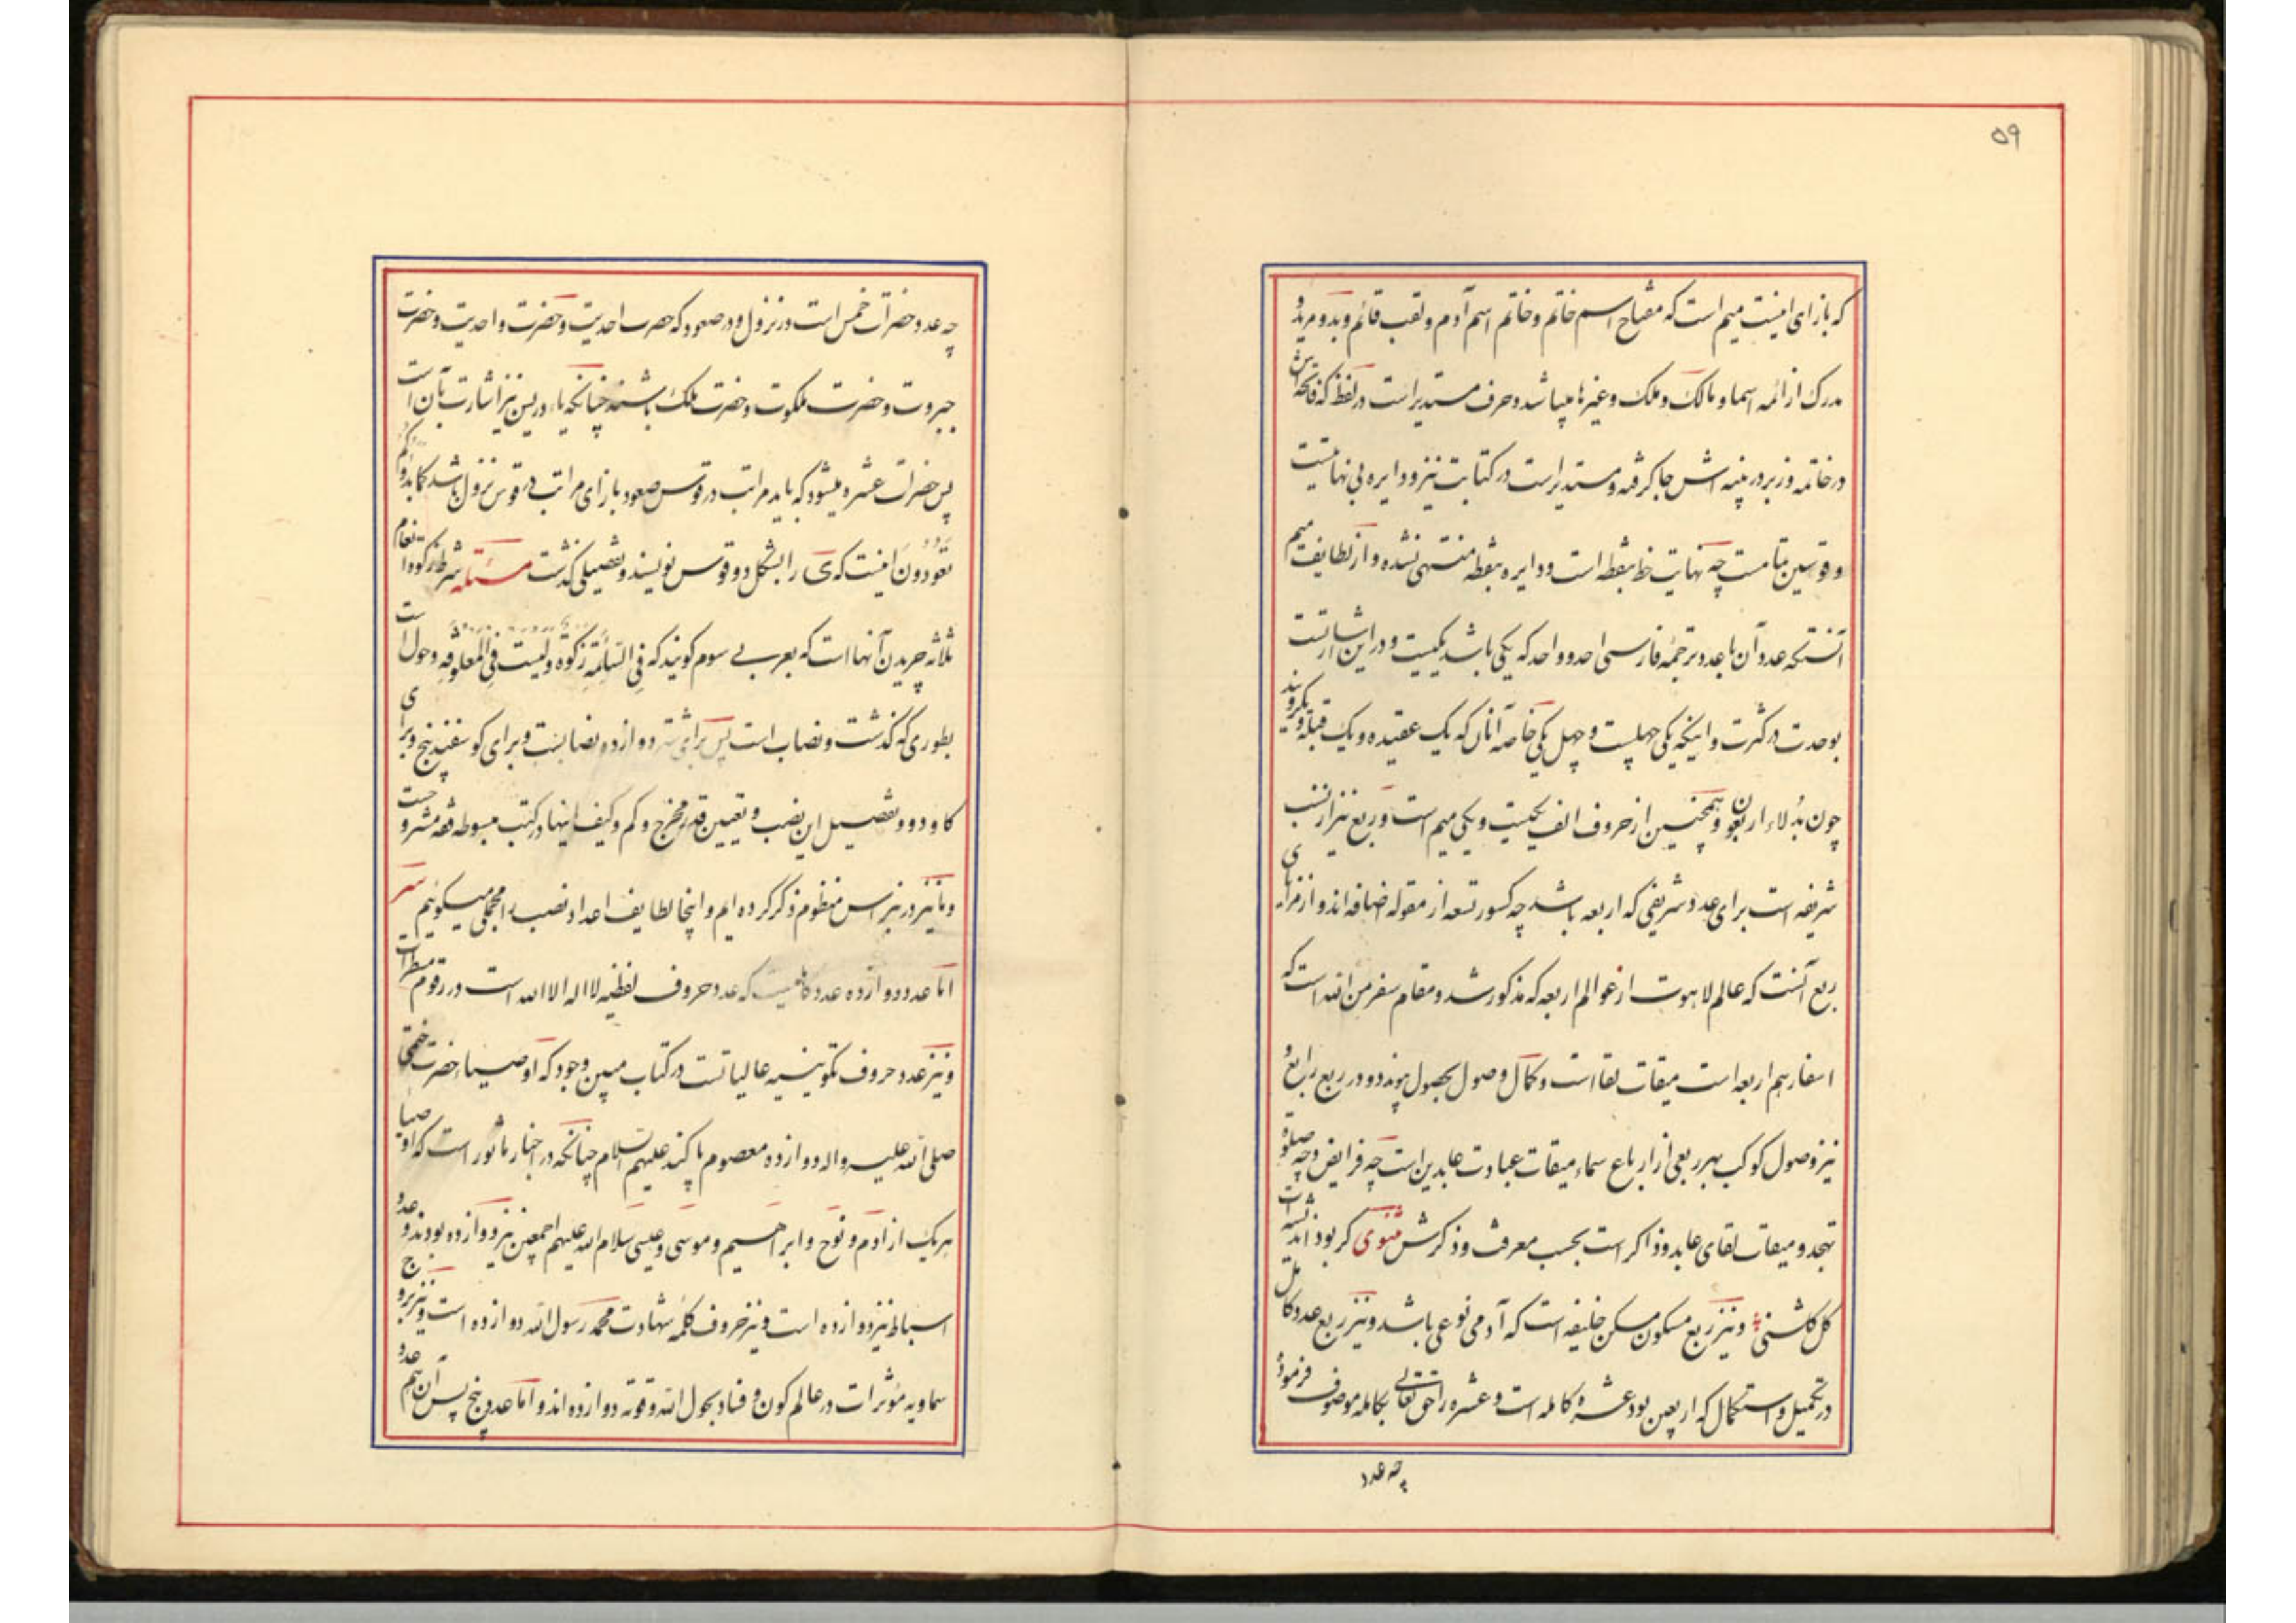 ۵۹
که بازای اینست میم است که مفتاح اسم خاتم و خاتم اسم آدم و لقب قائم و بدو مرید و
مدرک از ائمه اسما و مالک و ملک و غیرها میباشد و حرف مستدیر است در لفظ که فاتحه اش
در خاتمه و زبر در بینه اش جا گرفته و مستدیر است در کتابت نیز و دایره بی نهایتست
و قوسین تمامست چه نهایت خط بنقطه است و دایره بنقطه منتهی نشده و از لطایف میم
آنستکه عدد آن با عدد ترجمه فارسی احد و واحد که یکی باشد یکیست و در این اشارتست
بوحدت در کثرت و اینکه یکی چهلست و چهل یکی خاصه آنان که یک عقیده و یک قبله و یکرویند
چون بدلاء اربعون و همچنین از حروف الف یکیست و یکی میم است و ربع نیز از نسب
شریفه است برای عدد شریفی که اربعه باشد چه کسور تسعه از مقوله اضافه اند و از مزایای
ربع آنست که عالم لاهوت از عوالم اربعه که مذکور شد و مقام سفر من الله است که
اسفار هم اربعه است میقات لقا است و کمال وصول بحصول پیوندد و در ربع رابع و
نیز وصول کوکب بهر ربعی از ارباع سماء میقات عبادت عابدین است چه فرایض و چه صلوة
تهجد و میقات لقای عابد و ذاکر است بحسب معرفت و ذکرش مثنوی کر بود اندیشه ات
کل کلشنی و نیز ربع مسکون مسکن خلیفه است که آدمی نوعی باشد و نیز ربع عدد کامل
در تکمیل و استکمال که اربعین بود عشره کامله است و عشره را حق تعالی بکامله موصوف فرموده
چه عدد
چه عدد حضرات خمس است در نزول و در صعود که حضرت احدیت و حضرت واحدیت و حضرت
جبروت و حضرت ملکوت و حضرت ملک باشند چنانکه یاء در یس نیز اشارت بآن است
پس حضرات عشره میشود که باید مراتب در قوس صعود بازای مراتب در قوس نزول باشد کما بدأکم
تعودون اینست که ی را بشکل دو قوس نویسند و تفصیلی گذشت مسئله شرط زکوة انعام
ثلاثه چریدن آنها است که بعربی سوم گویند که فی السائمة زکوة و لیست فی المعلوفه و حول است
بطوری که گذشت و نصاب است پس برای شتر دوازده نصابست و برای گوسفند پنج و برای
گاو دو و تفصیل این نصب و تعیین قدر مخرج و کم و کیف اینها در کتب مبسوطه فقه مشروحست
و ما نیز در نبراس منظوم ذکر کرده ایم و اینجا لطایف اعداد نصب را مجملی میگوئیم سر
اما عدد دوازده عدد کاملیست که عدد حروف لفظیه لا اله الا الله است در رقوم مسطرات
و نیز عدد حروف تکوینیه عالیاتست در کتاب مبین وجود که اوصیاء حضرت ختمی
صلی الله علیه و اله دوازده معصوم پاکند علیهم السلام چنانکه در اخبار مأثور است که اوصیاء
هریک از آدم و نوح و ابراهیم و موسی و عیسی سلام الله علیهم اجمعین نیز دوازده بودند و عدد
اسباط نیز دوازده است و نیز حروف کلمه شهادت محمد رسول الله دوازده است و نیز بروج
سماویه مؤثرات در عالم کون و فساد بحول الله و قوته دوازده اند و اما عدد پنج پس آن هم عدد